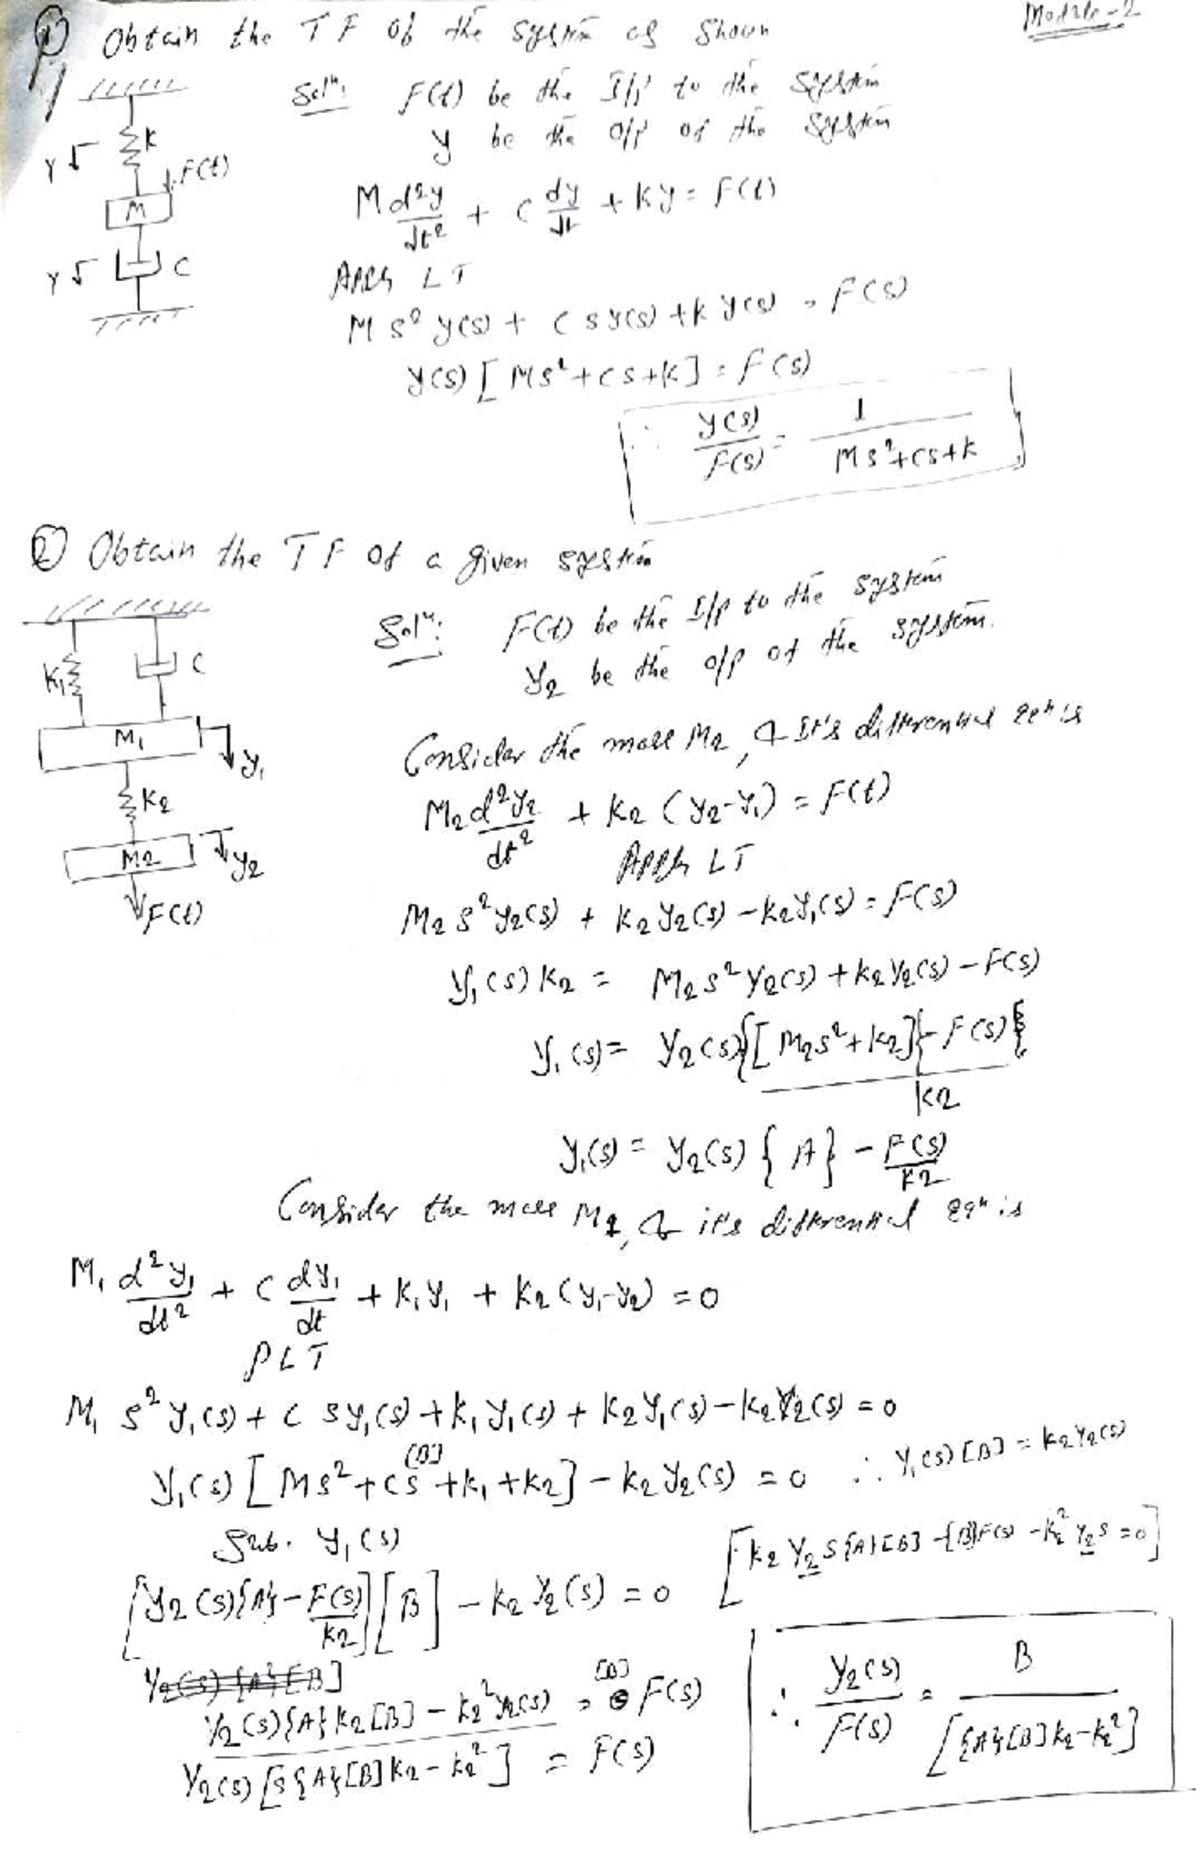 Module-2
1) Obtain the TF of the system as shown
Soln: F(t) be the I/p to the system
y be the o/p of the system
K
Y
F(t)
M
Y
C
M d²y/dt² + c dy/dt + ky = F(t)
Apply LT
M s² y(s) + C s y(s) + k y(s) = F(s)
y(s) [Ms² + cs + k] = F(s)
∴ y(s)/F(s) = 1/(Ms² + cs + k)
② Obtain the TF of a given system
Soln: F(t) be the I/p to the system
y2 be the o/p of the system.
K1
C
M1
y1
K2
M2
y2
F(t)
Consider the mass M2, & it's differential eqn is
M2 d²y2/dt² + K2 (y2-y1) = F(t)
Apply LT
M2 s² y2(s) + K2 y2(s) - K2 y1(s) = F(s)
y1(s) K2 = M2 s² y2(s) + k2 y2(s) - F(s)
y1(s) = y2(s){[M2s² + k2]} - F(s)} / k2
y1(s) = y2(s) {A} - F(s)/k2
Consider the mass M1, & it's differential eqn is
M1 d²y1/dt² + C dy1/dt + K1 y1 + K2 (y1-y2) = 0
LT
M1 s² y1(s) + C s y1(s) + K1 y1(s) + K2 y1(s) - K2 y2(s) = 0
[B]
y1(s) [Ms² + cs + k1 + k2] - K2 y2(s) = 0 ∴ y1(s) [B] = K2 y2(s)
Sub. y1(s)
[K2 Y2 S{A}[B] - [B]F(s) - K2² Y2 S = 0]
[y2(s){A} - F(s)/K2] [B] - K2 y2(s) = 0
Y2(s) {A} [B]
y2(s){A} K2 [B] - K2² y2(s) = [B] F(s)
Y2(s) [S{A}[B] K2 - K2²] = F(s)
∴ y2(s)/F(s) = B/[{A}[B] k2 - k2²]